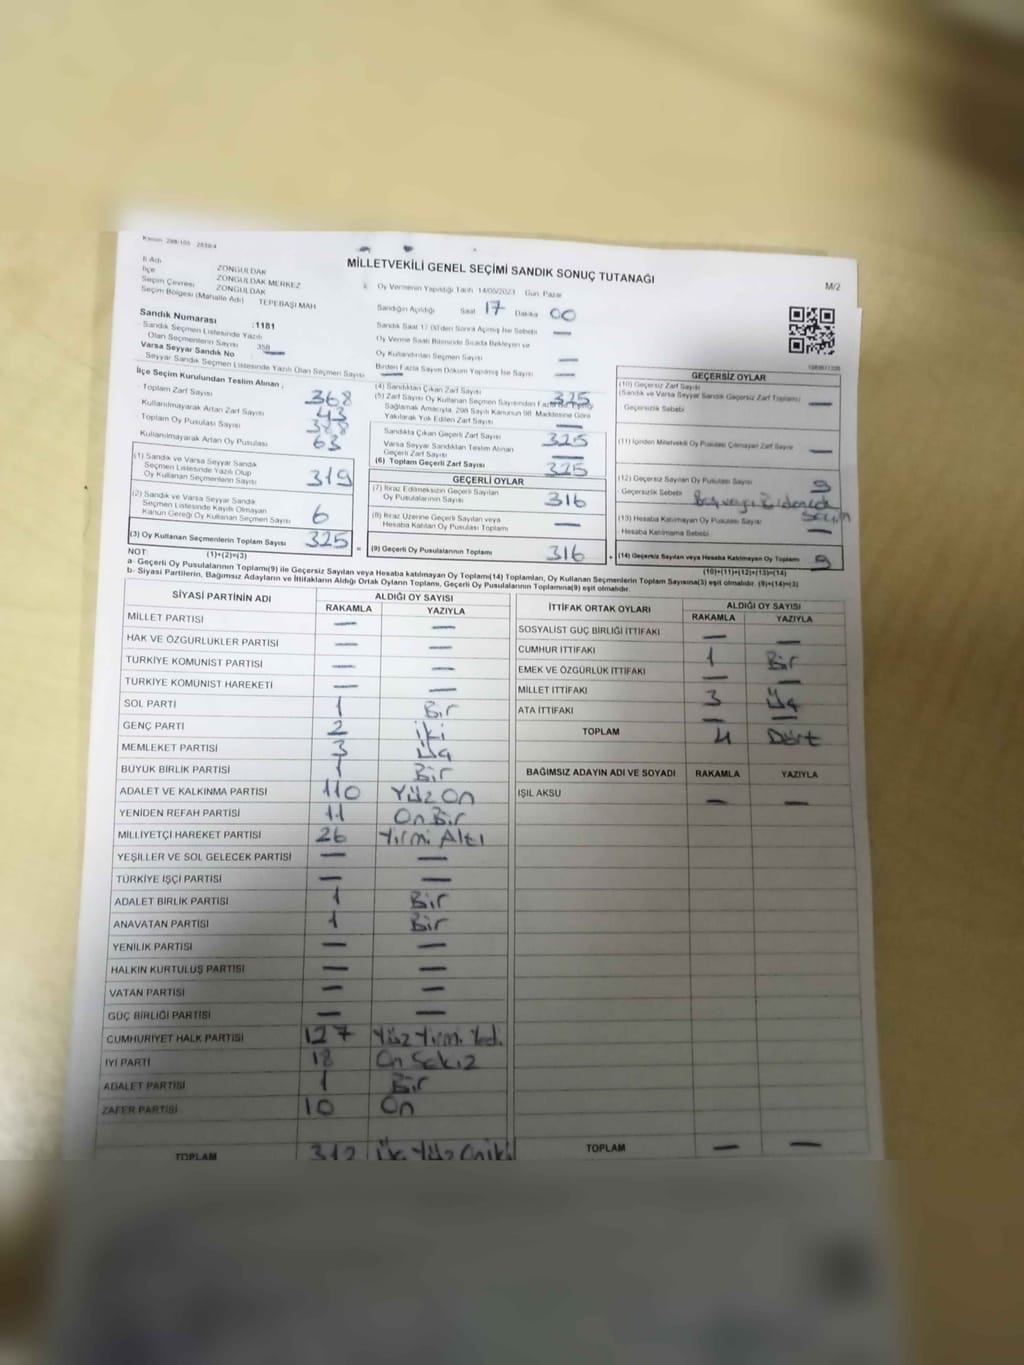 Kanun: 298/105 2839/4
MİLLETVEKİLİ GENEL SEÇİMİ SANDIK SONUÇ TUTANAĞI
M/2
İl Adı ZONGULDAK
İlçe ZONGULDAK MERKEZ
Seçim Çevresi ZONGULDAK
Seçim Bölgesi (Mahalle Adı) TEPEBAŞI MAH
Sandık Numarası :1181
Sandık Seçmen Listesinde Yazılı
Olan Seçmenlerin Sayısı 358
Varsa Seyyar Sandık No —
Seyyar Sandık Seçmen Listesinde Yazılı Olan Seçmen Sayısı —
Oy Vermenin Yapıldığı Tarih 14/05/2023 Gün Pazar
Sandığın Açıldığı Saat 17 Dakika 00
Sandık Saat 17:00'den Sonra Açılmış İse Sebebi —
Oy Verme Saati Bitiminde Sırada Bekleyen ve
Oy Kullandırılan Seçmen Sayısı —
Birden Fazla Sayım Döküm Yapılmış İse Sayısı —
İlçe Seçim Kurulundan Teslim Alınan ;
Toplam Zarf Sayısı 368
Kullanılmayarak Artan Zarf Sayısı 43
Toplam Oy Pusulası Sayısı 388
Kullanılmayarak Artan Oy Pusulası 63
(1) Sandık ve Varsa Seyyar Sandık
Seçmen Listesinde Yazılı Olup
Oy Kullanan Seçmenlerin Sayısı 319
(2) Sandık ve Varsa Seyyar Sandık
Seçmen Listesinde Kayıtlı Olmayan
Kanun Gereği Oy Kullanan Seçmen Sayısı 6
(3) Oy Kullanan Seçmenlerin Toplam Sayısı 325
(1)+(2)=(3)
(4) Sandıktan Çıkan Zarf Sayısı 325
(5) Zarf Sayısı Oy Kullanan Seçmen Sayısından Fazla
Sağlamak Amacıyla, 298 Sayılı Kanunun 98. Maddesine Göre
Yakılarak Yok Edilen Zarf Sayısı —
Sandıkta Çıkan Geçerli Zarf Sayısı 325
Varsa Seyyar Sandıktan Teslim Alınan
Geçerli Zarf Sayısı —
(6) Toplam Geçerli Zarf Sayısı 325
GEÇERLİ OYLAR
(7) İtiraz Edilmeksizin Geçerli Sayılan
Oy Pusulalarının Sayısı 316
(8) İtiraz Üzerine Geçerli Sayılan veya
Hesaba Katılan Oy Pusulası Toplamı —
(9) Geçerli Oy Pusulalarının Toplamı 316
GEÇERSİZ OYLAR
(10) Geçersiz Zarf Sayısı
(Sandık ve Varsa Seyyar Sandık Geçersiz Zarf Toplamı) —
Geçersizlik Sebebi
(11) İçinden Milletvekili Oy Pusulası Çıkmayan Zarf Sayısı —
(12) Geçersiz Sayılan Oy Pusulası Sayısı 9
Geçersizlik Sebebi
(13) Hesaba Katılmayan Oy Pusulası Sayısı —
Hesaba Katılmama Sebebi
(14) Geçersiz Sayılan veya Hesaba Katılmayan Oy Toplamı 9
(10)+(11)+(12)+(13)=(14)
NOT:
a- Geçerli Oy Pusulalarının Toplamı(9) ile Geçersiz Sayılan veya Hesaba katılmayan Oy Toplamı(14) Toplamları, Oy Kullanan Seçmenlerin Toplam Sayısına(3) eşit olmalıdır. (9)+(14)=(3)
b- Siyasi Partilerin, Bağımsız Adayların ve İttifakların Aldığı Ortak Oyların Toplamı, Geçerli Oy Pusulalarının Toplamına(9) eşit olmalıdır.
SİYASİ PARTİNİN ADI ALDIĞI OY SAYISI
RAKAMLA YAZIYLA
MİLLET PARTİSİ — —
HAK VE ÖZGÜRLÜKLER PARTİSİ — —
TÜRKİYE KOMÜNİST PARTİSİ — —
TÜRKİYE KOMÜNİST HAREKETİ — —
SOL PARTİ 1 Bir
GENÇ PARTİ 2 iki
MEMLEKET PARTİSİ 3 Üç
BÜYÜK BİRLİK PARTİSİ 1 Bir
ADALET VE KALKINMA PARTİSİ 110 Yüz On
YENİDEN REFAH PARTİSİ 11 On Bir
MİLLİYETÇİ HAREKET PARTİSİ 26 Yirmi Altı
YEŞİLLER VE SOL GELECEK PARTİSİ — —
TÜRKİYE İŞÇİ PARTİSİ — —
ADALET BİRLİK PARTİSİ 1 Bir
ANAVATAN PARTİSİ 1 Bir
YENİLİK PARTİSİ — —
HALKIN KURTULUŞ PARTİSİ — —
VATAN PARTİSİ — —
GÜÇ BİRLİĞİ PARTİSİ — —
CUMHURİYET HALK PARTİSİ 127 Yüz Yirmi Yedi
İYİ PARTİ 18 On Sekiz
ADALET PARTİSİ 1 Bir
ZAFER PARTİSİ 10 On
TOPLAM 312 Üç Yüz Oniki
İTTİFAK ORTAK OYLARI ALDIĞI OY SAYISI
RAKAMLA YAZIYLA
SOSYALİST GÜÇ BİRLİĞİ İTTİFAKI — —
CUMHUR İTTİFAKI 1 Bir
EMEK VE ÖZGÜRLÜK İTTİFAKI — —
MİLLET İTTİFAKI 3 Üç
ATA İTTİFAKI — —
TOPLAM 4 Dört
BAĞIMSIZ ADAYIN ADI VE SOYADI RAKAMLA YAZIYLA
IŞIL AKSU — —
TOPLAM — —